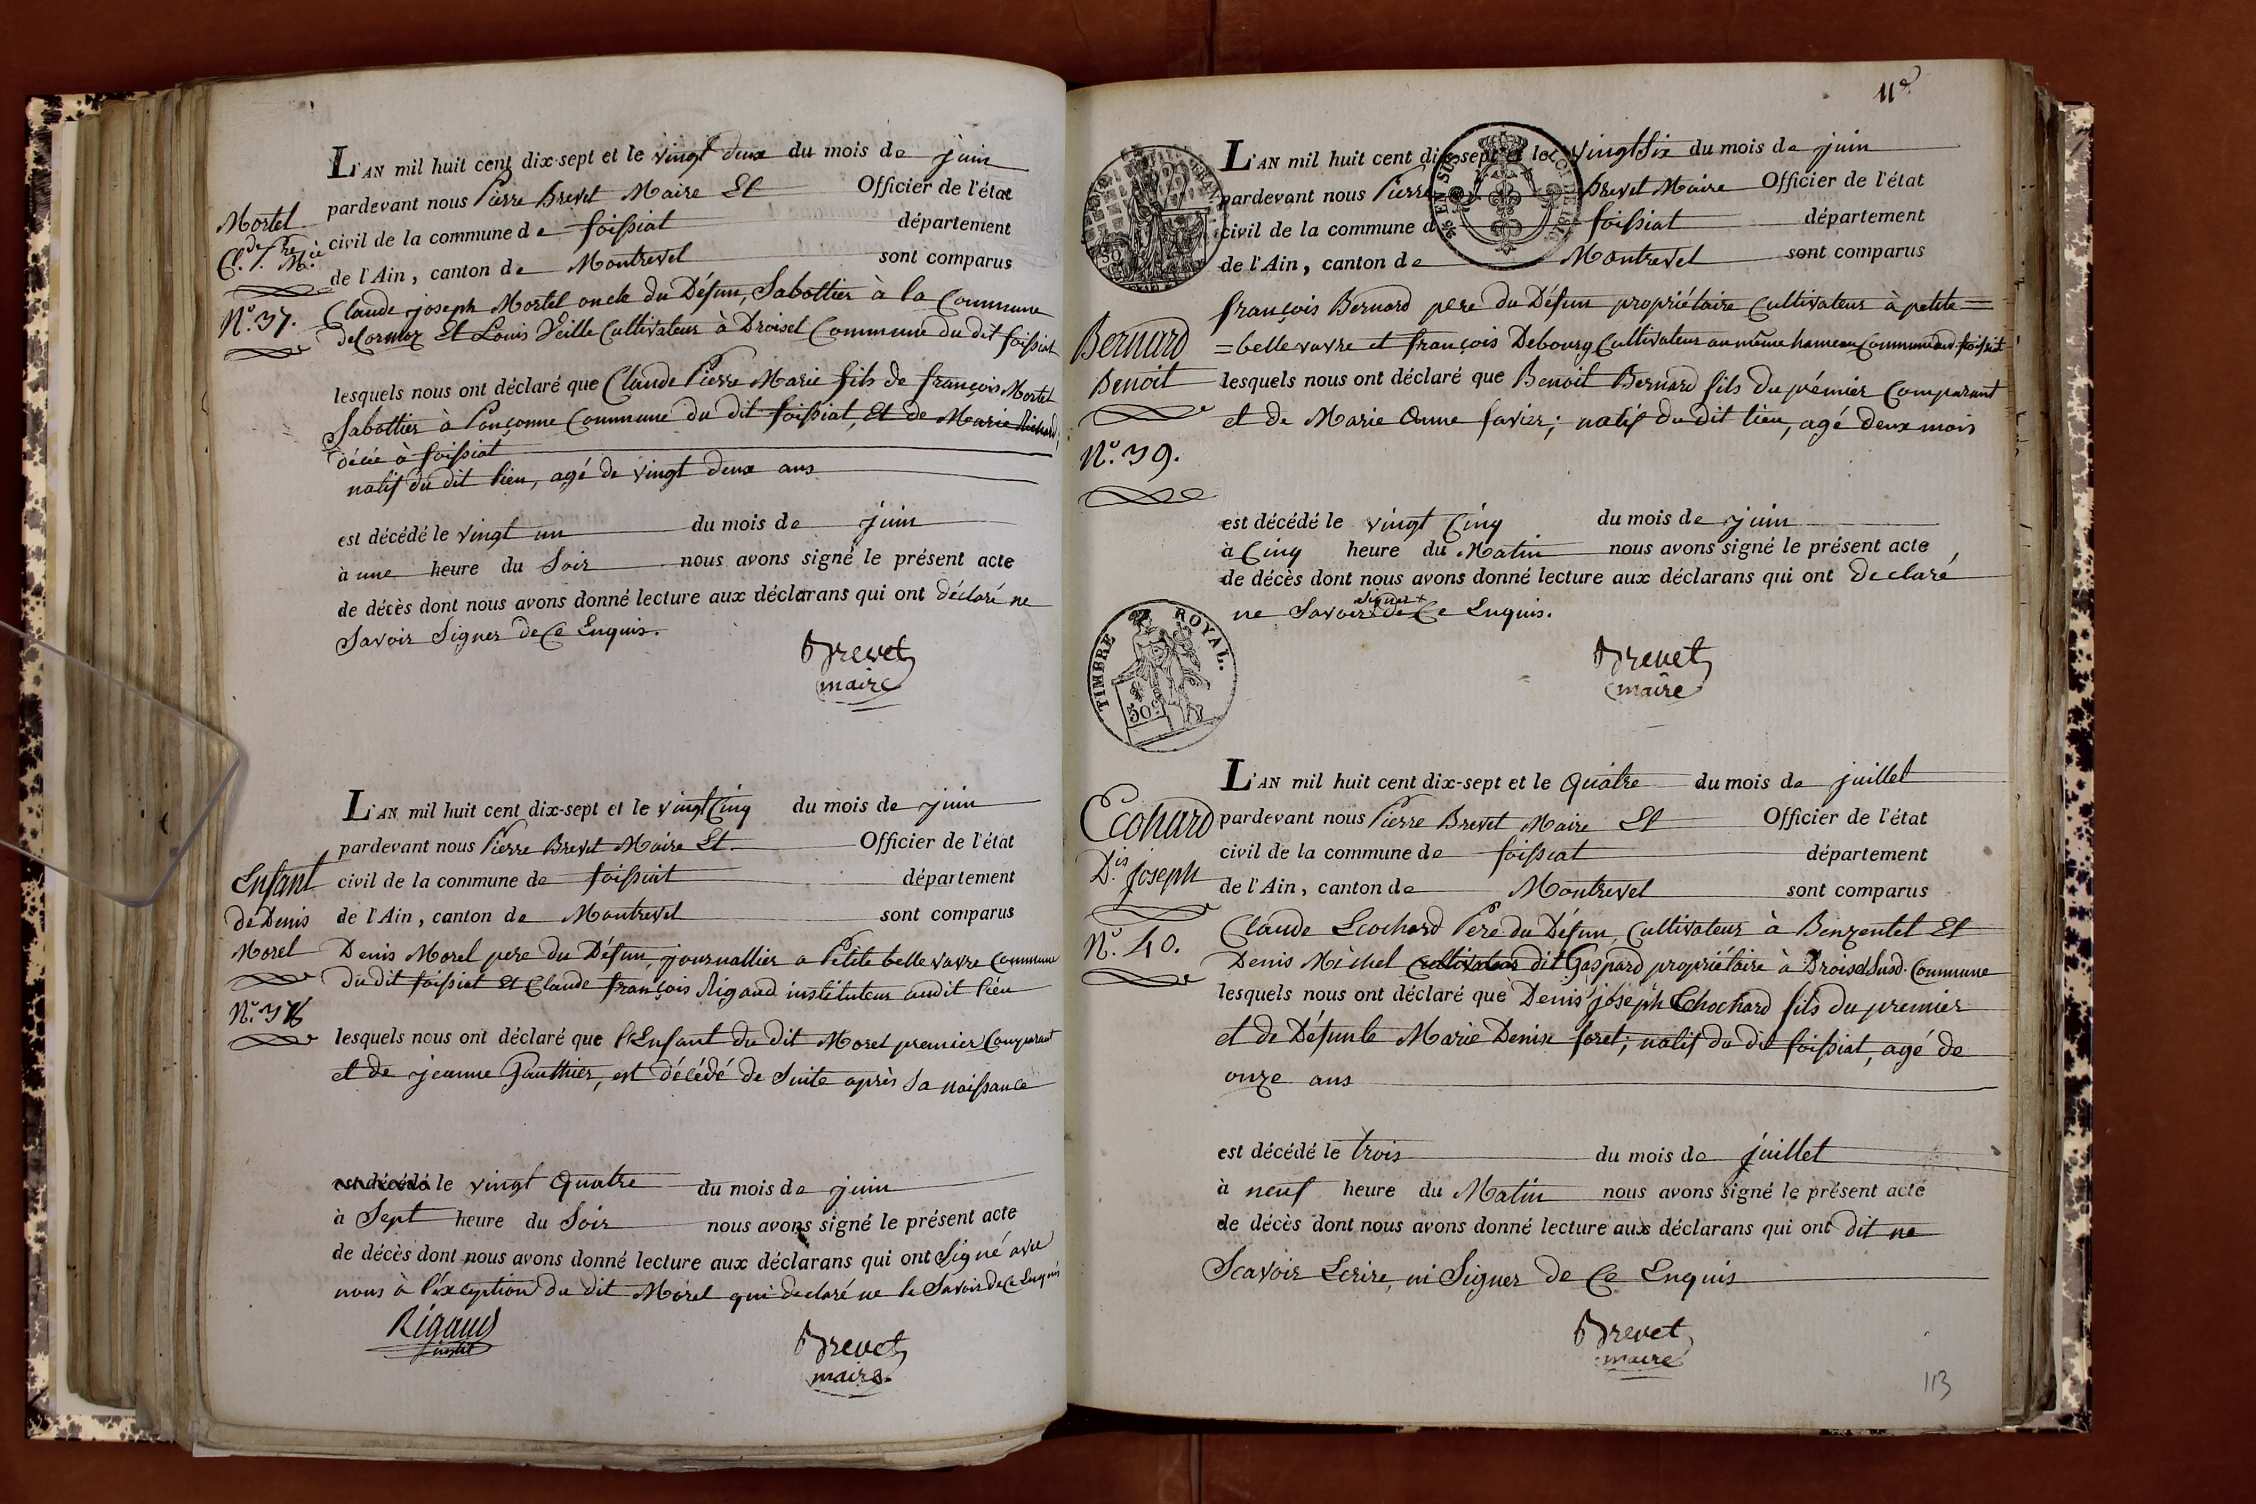 L'AN mil huit cent dix-sept et le vingt deux du mois de juin
pardevant nous Pierre Brevet Maire Et Officier de l'état
civil de la commune de foissiat département
de l'Ain, canton de Montrevel sont comparus
Claude joseph Mortel oncle du Défun, Sabottier à la Commune
de Cormoz Et Louis Veille Cultivateur à Droisel Commune du dit foissiat
lesquels nous ont déclaré que Claude Pierre Marie fils de françois Mortel
Sabottier à Ponçonne Commune du dit foissiat, Et de Marie Richard,
à foissiat
natif du dit lieu, agé de vingt deux ans
est décédé le vingt un du mois de juin
à une heure du Soir nous avons signé le présent acte
de décès dont nous avons donné lecture aux déclarans qui ont déclaré ne
Savoir Signer de Ce Enquis.
Brevet
maire
Mortel
Cl.de P.re M.ie
N.º 37.
L'AN mil huit cent dix-sept et le vingt Cinq du mois de juin
pardevant nous Pierre Brevet Maire Et Officier de l'état
civil de la commune de foissiat département
de l'Ain, canton de Montrevel sont comparus
Denis Morel pere du Défun, journallier a Petite belle vavre Commune
du dit foissiat Et Claude françois Rigaud instituteur audit lieu
lesquels nous ont déclaré que l'Enfant du dit Morel premier Comparant
et de jeanne Gauthier, est décédé de Suite après Sa naissance
est décédé le vingt Quatre du mois de juin
à Sept heure du Soir nous avons signé le présent acte
de décès dont nous avons donné lecture aux déclarans qui ont Signé avec
nous à l'éxception du dit Morel qui declaré ne le Savoir de Ce Enquis
Rigaud
Brevet
maire.
Enfant
de Denis
Morel
N.º 38
118
L'AN mil huit cent dix-sept et le vingt Six du mois de juin
pardevant nous Pierre Brevet Maire Officier de l'état
civil de la commune de foissiat département
de l'Ain, canton de Montrevel sont comparus
françois Bernard pere du Défun propriétaire Cultivateur à petite=
=belle vavre et françois Debourg Cultivateur au même hameau Commune du foissiat
lesquels nous ont déclaré que Benoit Bernard fils du prémier Comparant
et de Marie Anne favier; natif du dit lieu, agé deux mois
est décédé le vingt Cinq du mois de juin
à Cinq heure du Matin nous avons signé le présent acte
de décès dont nous avons donné lecture aux déclarans qui ont declaré
signer
ne Savoir de Ce Enquis.
Brevet
maire
Bernard
Benoit
N.º 39.
TIMBRE ROYAL.
50c
L'AN mil huit cent dix-sept et le Quatre du mois de juillet
pardevant nous Pierre Brevet Maire Et Officier de l'état
civil de la commune de foissiat département
de l'Ain, canton de Montrevel sont comparus
Claude Ecochard Pere du Défun, Cultivateur à Benzentel Et
Denis Michel cultivateur dit Gaspard propriétaire à Droisel Susd. Commune
lesquels nous ont déclaré que Denis joseph Echochard fils du premier
et de Défunte Marie Denise foret; natif du dit foissiat, agé de
onze ans
est décédé le trois du mois de juillet
à neuf heure du Matin nous avons signé le présent acte
de décès dont nous avons donné lecture aux déclarans qui ont dit ne
Scavoir Ecrire, ni Signer de Ce Enquis
Brevet
maire
Ecohard
D.is joseph
N.º 40.
113